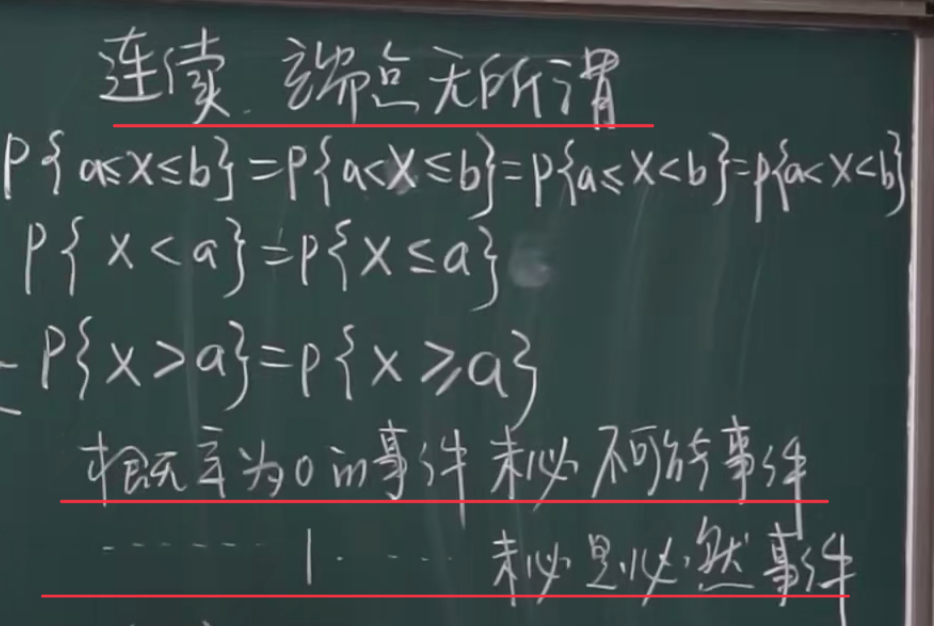 连续.端点无所谓
P{a≤X≤b}=P{a<X≤b}=P{a≤X<b}=P{a<X<b}
P{X<a}=P{X≤a}
P{X>a}=P{X≥a}
概率为0的事件未必不可能事件
······1····未必是必然事件